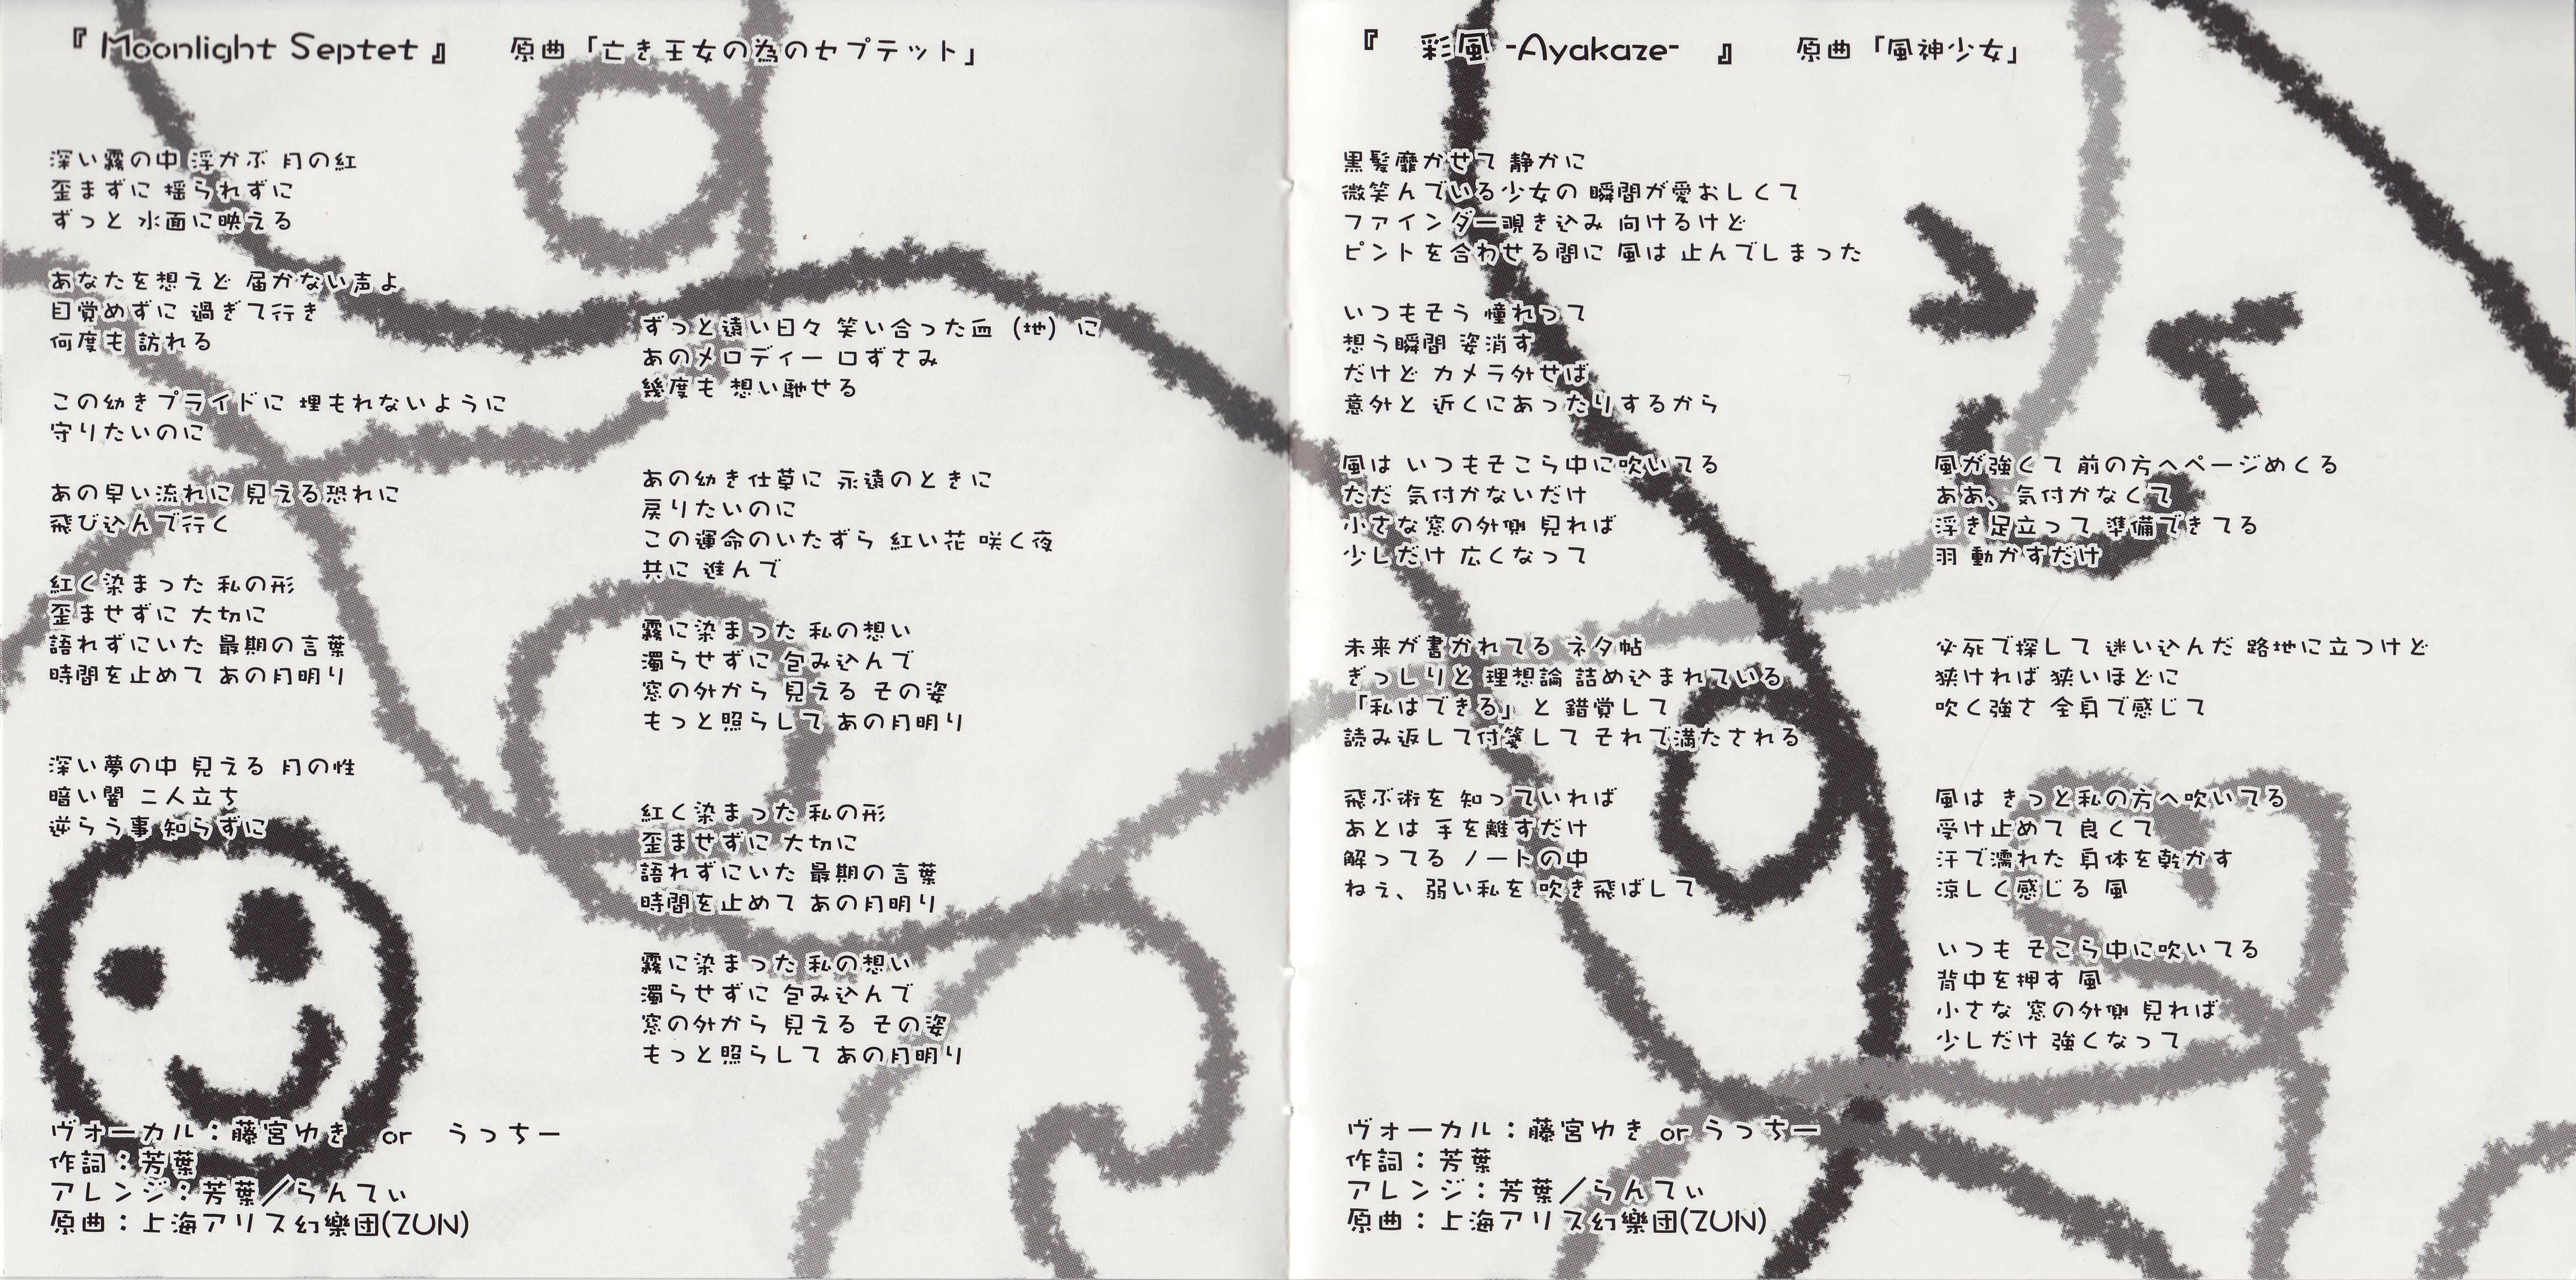 『 Moonlight Septet 』　原曲「亡き王女の為のセプテット」
深い霧の中 浮かぶ 月の紅
歪まずに 揺られずに
ずっと 水面に映える
あなたを想えど 届かない声よ
目覚めずに 過ぎて行き
何度も 訪れる
この幼きプライドに 埋もれないように
守りたいのに
あの早い流れに 見える恐れに
飛び込んで行く
紅く染まった 私の形
歪ませずに 大切に
語れずにいた 最期の言葉
時間を止めて あの月明り
深い夢の中 見える 月の性
暗い闇 二人立ち
逆らう事 知らずに
ずっと遠い日々 笑い合った血（地）に
あのメロディー 口ずさみ
幾度も 想い馳せる
あの幼き仕草に 永遠のときに
戻りたいのに
この運命のいたずら 紅い花 咲く夜
共に 進んで
霧に染まった 私の想い
濁らせずに 包み込んで
窓の外から 見える その姿
もっと照らして あの月明り
紅く染まった 私の形
歪ませずに 大切に
語れずにいた 最期の言葉
時間を止めて あの月明り
霧に染まった 私の想い
濁らせずに 包み込んで
窓の外から 見える その姿
もっと照らして あの月明り
ヴォーカル：藤宮ゆき　or　うっちー
作詞：芳葉
アレンジ：芳葉／らんてぃ
原曲：上海アリス幻樂団(ZUN)
『　彩風 -Ayakaze-　』　原曲「風神少女」
黒髪靡かせて 静かに
微笑んでいる少女の 瞬間が愛おしくて
ファインダー覗き込み 向けるけど
ピントを合わせる間に 風は 止んでしまった
いつもそう 憧れって
想う瞬間 姿消す
だけど カメラ外せば
意外と 近くにあったりするから
風は いつもそこら中に吹いてる
ただ 気付かないだけ
小さな窓の外側 見れば
少しだけ 広くなって
未来が書かれてる ネタ帖
ぎっしりと 理想論 詰め込まれている
「私はできる」と 錯覚して
読み返して付箋して それで満たされる
飛ぶ術を 知っていれば
あとは 手を離すだけ
解ってる ノートの中
ねぇ、弱い私を 吹き飛ばして
風が強くて 前の方へページめくる
ああ、気付かなくて
浮き足立って 準備できてる
羽 動かすだけ
必死で探して 迷い込んだ 路地に立つけど
狭ければ 狭いほどに
吹く強さ 全身で感じて
風は きっと私の方へ吹いてる
受け止めて 良くて
汗で濡れた 身体を乾かす
涼しく感じる 風
いつも そこら中に吹いてる
背中を押す 風
小さな 窓の外側 見れば
少しだけ 強くなって
ヴォーカル：藤宮ゆき or うっちー
作詞：芳葉
アレンジ：芳葉／らんてぃ
原曲：上海アリス幻樂団(ZUN)